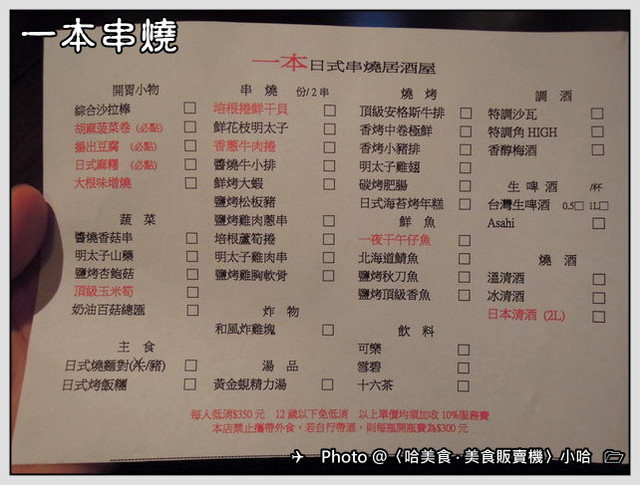 一本串燒
一本日式串燒居酒屋
開胃小物
綜合沙拉棒
胡麻菠菜卷 (必點)
揚出豆腐 (必點)
日式麻糬 (必點)
大根味增燒
蔬 菜
醬燒香菇串
明太子山藥
鹽烤杏鮑菇
頂級玉米筍
奶油百菇總匯
主 食
日式燒麵對(米/豬)
日式烤飯糰
串 燒 份/2串
培根捲鮮干貝
鮮花枝明太子
香蔥牛肉捲
醬燒牛小排
鮮烤大蝦
鹽烤松板豬
鹽烤雞肉蔥串
培根蘆筍捲
明太子雞肉串
鹽烤雞胸軟骨
炸 物
和風炸雞塊
湯 品
黃金蜆精力湯
燒 烤
頂級安格斯牛排
香烤中卷極鮮
香烤小豬排
明太子雞翅
碳烤肥腸
日式海苔烤年糕
鮮 魚
一夜干午仔魚
北海道鯖魚
鹽烤秋刀魚
鹽烤頂級香魚
飲 料
可樂
雪碧
十六茶
調 酒
特調沙瓦
特調角 HIGH
香醇梅酒
生 啤 酒 /杯
台灣生啤酒 0.5 1L
Asahi
燒 酒
溫清酒
冰清酒
日本清酒 (2L)
每人低消$350元 12歲以下免低消 以上單價均須加收10%服務費
本店禁止攜帶外食，若自行帶酒，則每瓶開瓶費為$300元
Photo @〈哈美食‧美食販賣機〉小哈